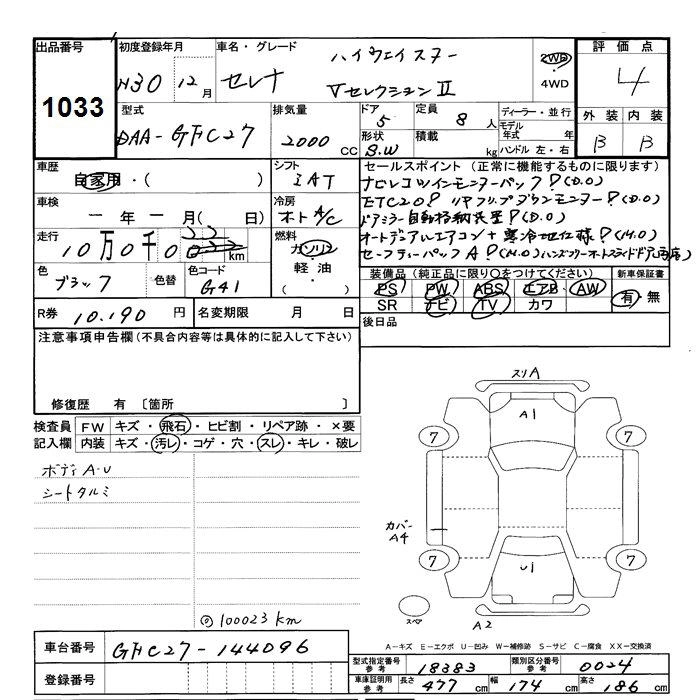 出品番号
1033
初度登録年月
H30 12月
車名・グレード
ハイウェイスター
セレナ
Vセレクション II
2WD
・
4WD
評価点
4
外装 内装
B B
型式
DAA-GFC27
排気量
2000 CC
ドア
5
形状
S.W
定員
8 人
積載
kg
ディーラー・並行
モデル
年式 年
ハンドル 左・右
車歴
自家用・( )
シフト
IAT
車検
ー年ー月(日)
冷房
オートA/C
走行
10万0千0 km
燃料
ガソリン
・
軽油
・
( )
色
ブラック
色替
色コード
G41
セールスポイント(正常に機能するものに限ります)
ナビレコツインモニターパック!(D.O)
ETC2.0! リヤフリップダウンモニター!(D.O)
ドアミラー自動格納装置!(D.O)
オートデュアルエアコン+寒冷地仕様!(M.O)
セーフティーパックA!(M.O)
装備品(純正品に限り○をつけてください)
PS PW ABS エアB AW
SR ナビ TV カワ
新車保証書
有・無
R券 10.190 円
名変期限 月 日
後日品
注意事項申告欄(不具合内容等は具体的に記入して下さい)
修復歴 有 〔箇所 〕
検査員 FW キズ・飛石・ヒビ割・リペア跡・×要
記入欄 内装 キズ・汚レ・コゲ・穴・スレ・キレ・破レ
ボディA-U
シートタルミ
◎100023km
スリA
A1
7 7
カバー
A4
7 7
U1
スペア
A2
A-キズ E-エクボ U-凹み W-補修跡 S-サビ C-腐食 XX-交換済
車台番号 GFC27-144096
登録番号
型式指定番号
参考
18383
類別区分番号
参考
0024
車庫証明用
参考
長さ 477 cm 幅 174 cm 高さ 186 cm